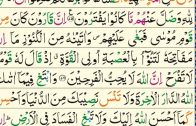 وَضَلَّ عَنْهُم مَّا كَانُوا يَفْتَرُونَ ۝ إِنَّ قَارُونَ كَانَ
قَوْمِ مُوسَىٰ فَبَغَىٰ عَلَيْهِمْ وَءَاتَيْنَٰهُ مِنَ الْكُنُوزِ مَا
مَفَاتِحَهُ لَتَنُوأُ بِالْعُصْبَةِ أُولِي الْقُوَّةِ إِذْ قَالَ لَهُ
تَفْرَحْ إِنَّ اللَّهَ لَا يُحِبُّ الْفَرِحِينَ ۝ وَابْتَغِ فِيمَا
اللَّهُ الدَّارَ الْآخِرَةَ وَلَا تَنسَ نَصِيبَكَ مِنَ الدُّنْيَا وَأَحْسِن
أَحْسَنَ اللَّهُ إِلَيْكَ وَلَا تَبْغِ الْفَسَادَ فِي الْأَرْضِ